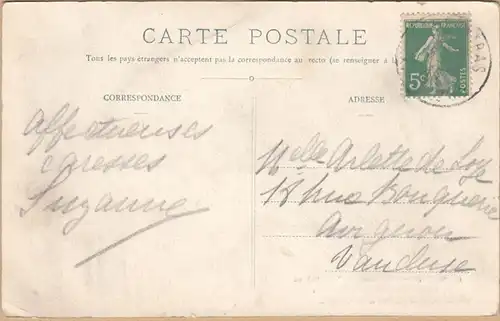 CARTE POSTALE
Tous les pays étrangers n'acceptent pas la correspondance au recto (se renseigner à l
CORRESPONDANCE
ADRESSE
RÉPUBLIQUE FRANÇAISE
5c
POSTES
RAS
Affectueuses
caresses
Suzanne
Melle Arlette de Loye
18 rue Bouquerie
Avignon
Vaucluse